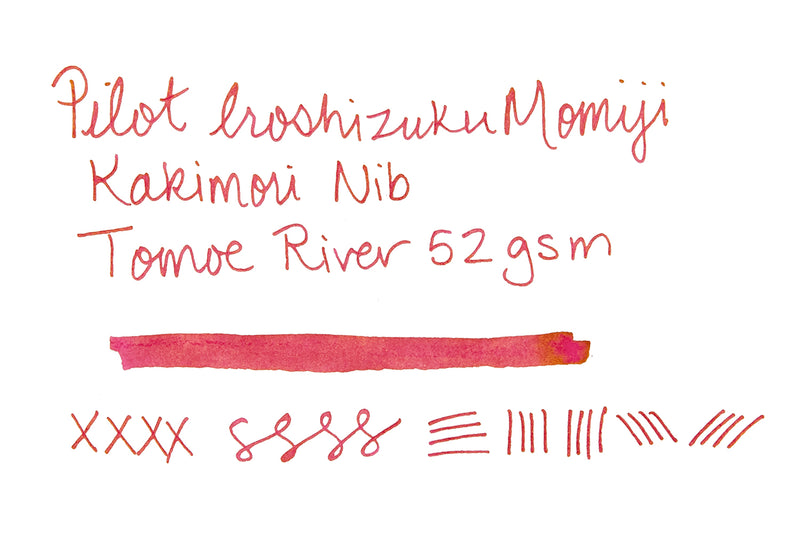 Pilot Iroshizuku Momiji
Kakimori Nib
Tomoe River 52gsm
XXXX